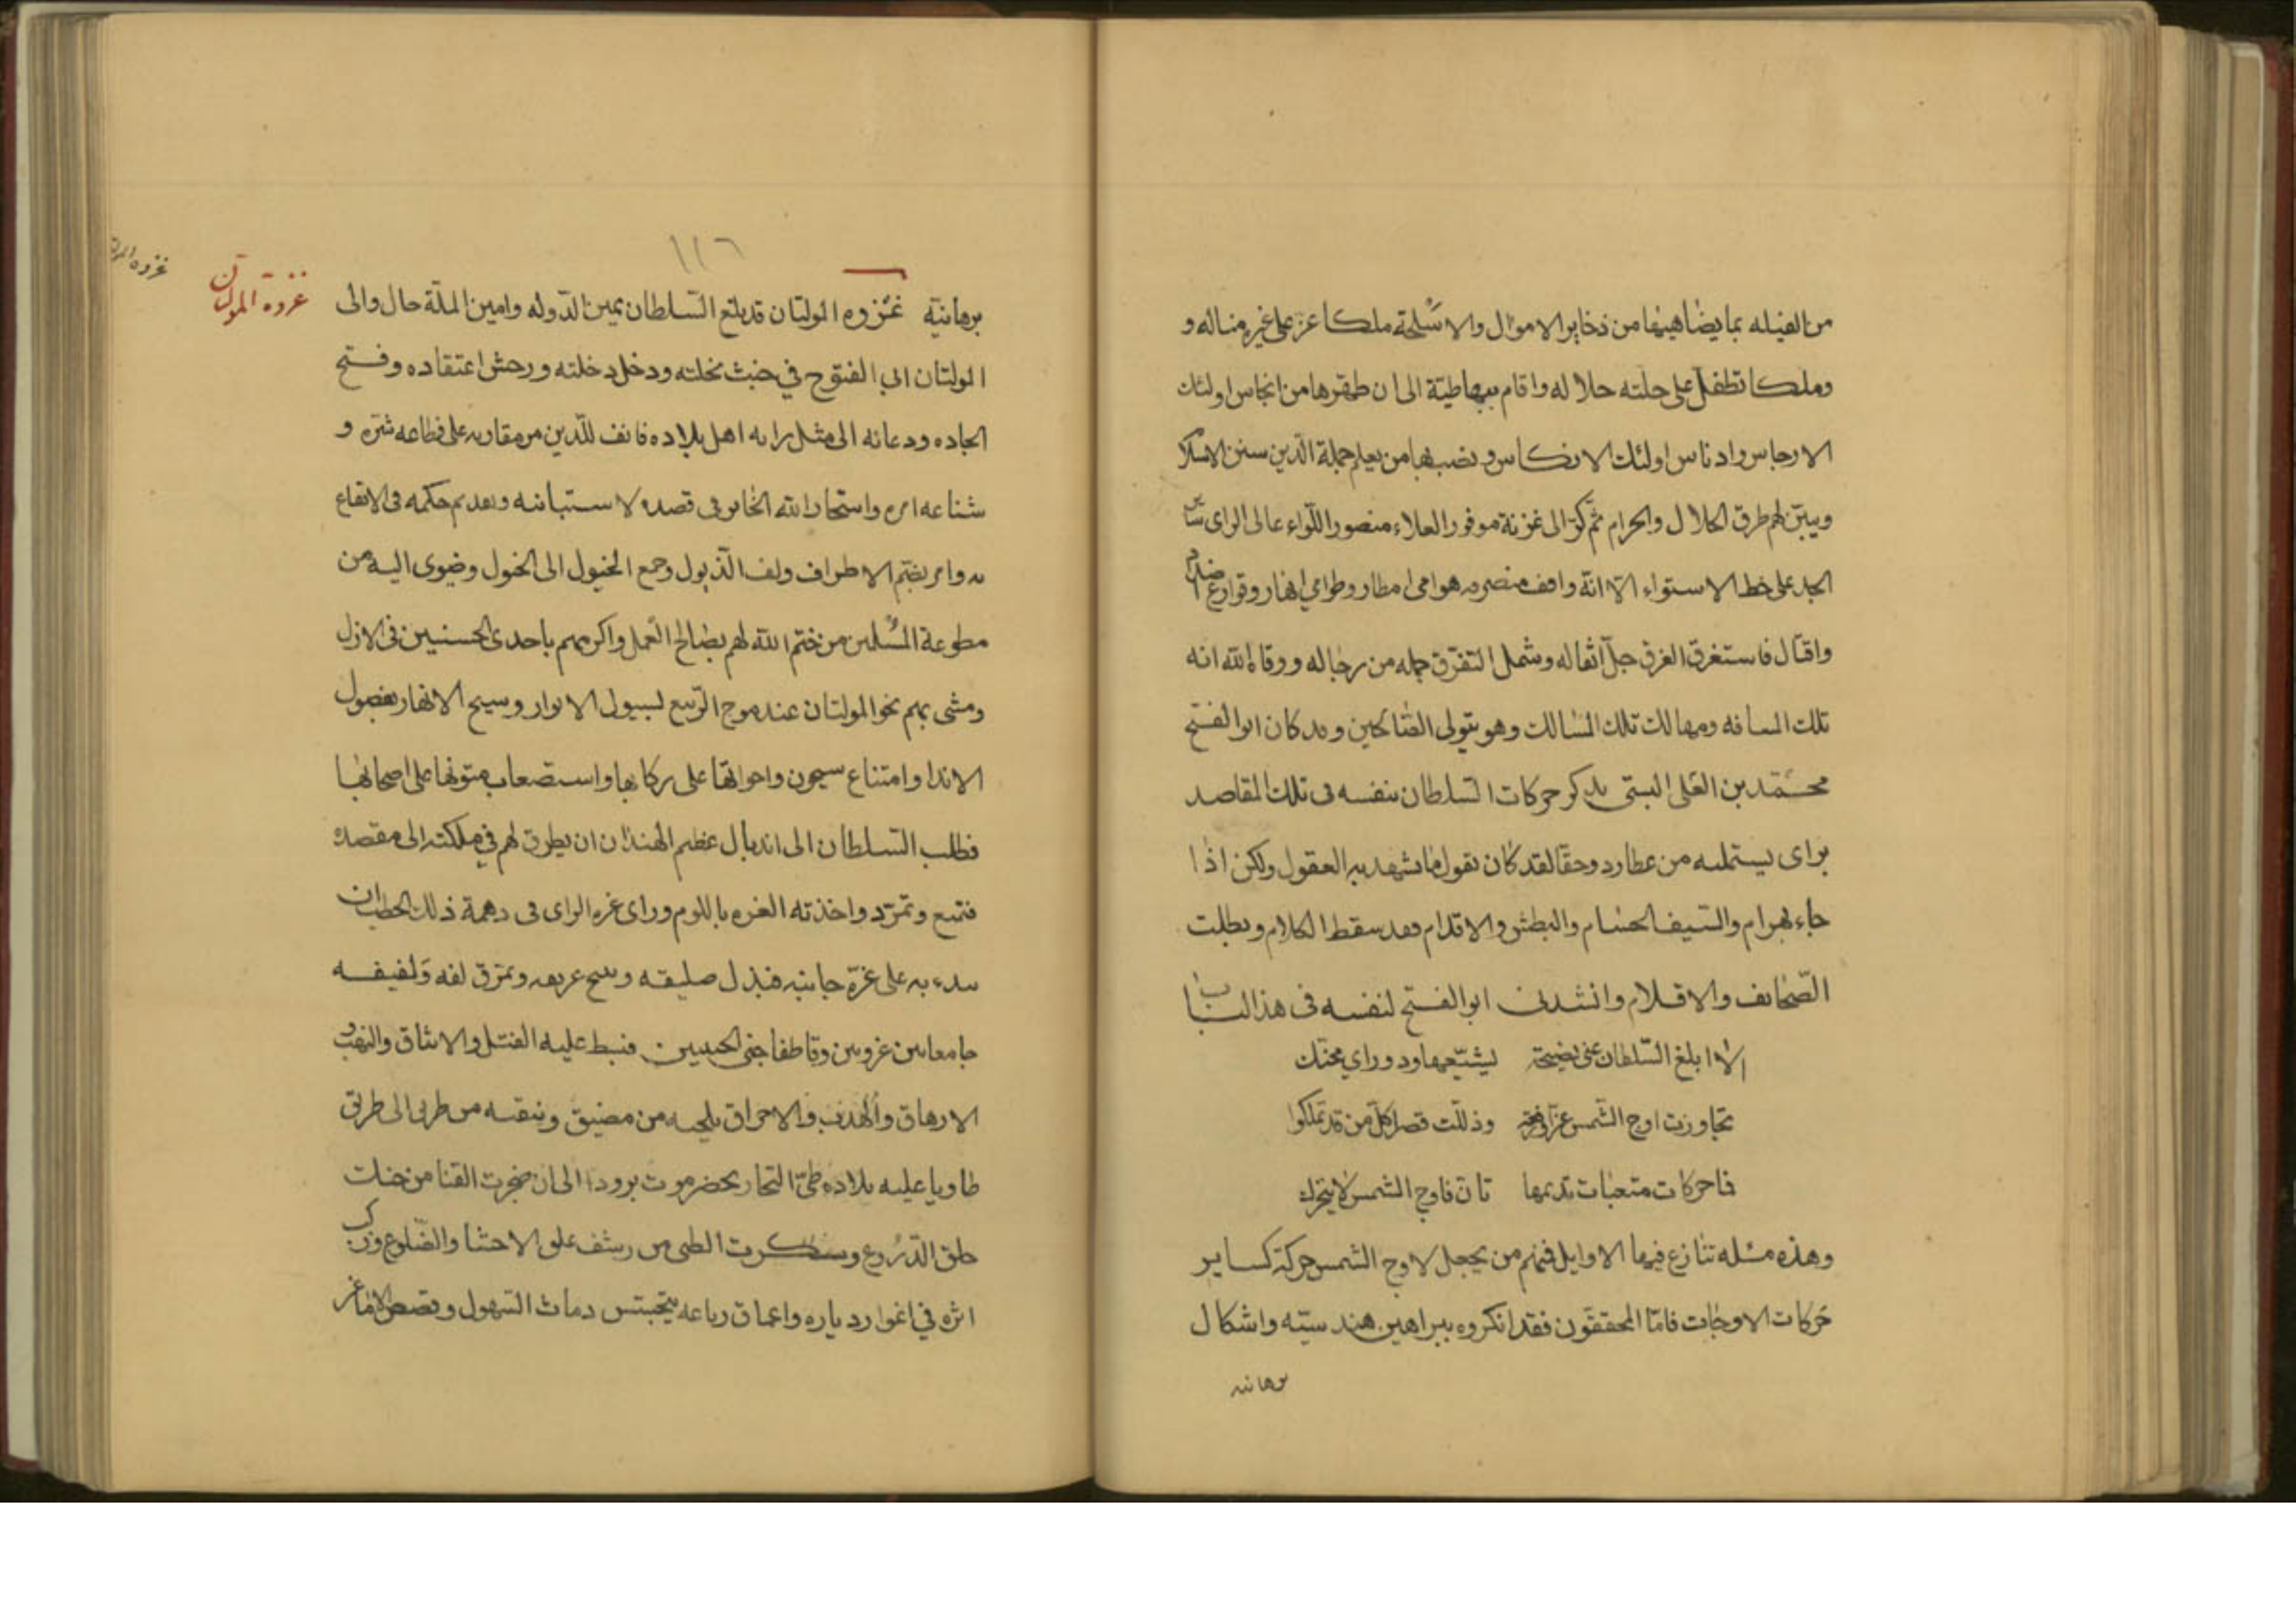 من الفيله بما يضاهيها من ذخاير الاموال والاسلحة ملكا عز على غيره مناله و
وملكا تطفل على حلته حلاله واقام ببهاطية الى ان طهرها من انجاس اولئك
الارجاس وادناس اولئك الانكاس ونصب بها من يعلم حملة الدين سنن الاسلام
ويبين لهم طرق الحلال والحرام ثم كر الى غزنة موفور العلاء منصور اللواء عالى الراى
الجد على خط الاستواء الا انه وافق منصرفه هوامى امطار وطوامى انهار وقوارع
واقتال فاستغرق الغرق جل اثقاله وشمل التفرق جمله من رجاله ووقاه الله افه
تلك المسافه ومهالك تلك المسالك وهو يتولى الصالحين وقد كان ابو الفتح
محمد بن العلى البستى يذكر حركات السلطان بنفسه فى تلك المقاصد
براى يستمليه من عطارد وحقا لقد كان يقول ما تشهد به العقول ولكن اذا
جاء بهرام والسيف الحسام والبطش والاقدام فقد سقط الكلام وبطلت
الصحائف والاقلام وانشدنى ابو الفتح لنفسه فى هذا الباب
الا ابلغ السلطان عنى نصيحة يشيعها ود وراي محنك
تجاوزت اوج الشمس عزا ورفعة وذللت قصرا كل من قد تملكوا
فما حركات متعبات تديمها تان فاوج الشمس لا يتحرك
وهذه مسئله تنازع فيها الاوايل فمنهم من يجعل لاوج الشمس حركة كساير
حركات الاوجات فاما المحققون فقد انكروه ببراهين هندسيته واشكال
برهانيه
١١٦
برهانية غزوه المولتان قد بلغ السلطان يمين الدوله وامين الملة حال والى
المولتان ابي الفتوح في خبث نحلته ودخل دخلته ورجس اعتقاده وقبح
الحاده ودعائه الى مثل رايه اهل بلاده فانف للدين من مقاربه على فظاعه شره و
شناعه امره واستخار الله الخاير فى قصده لاستتابته وتقديم حكمه فى الايقاع
به وامر بضم الاطراف ولف الذيول وجمع الخيول الى الخيول وضوى اليه من
مطوعة المسلمين من ختم الله لهم بصالح العمل واكرمهم باحدى الحسنيين فى الازل
ومشى بهم نحو المولتان عند موج الربيع لسيول الانوار وسيح الانهار بفضول
الاندا وامتناع سيحون واخواتها على ركابها واستصعاب متونها على اصحابها
فطلب السلطان الى اندبال عظيم الهند ان يطرق لهم في مملكته الى مقصده
فتمنع وتمرد واخذته العزه باللوم وراى غره الراى فى دهمة ذلك الخطب ان
يبدء به على غرة جانبه فيذل صليفه ويمزق لفه ولفيفه
جامعا بين غزوين وقاطفا جنى الجنيين فبسط عليه القتل والايثاق والنهب و
الارهاق والهدف والاحراق يلجيه من مضيق وينفيه من طريق الى طريق
طاويا عليه بلاده طى التجار بحضرموت برودا الى ان ضجرت القنا من خلت
حلق الدروع وسكرت الظبى من رشف علق الاحشا والضلوع وركب
اثره في اغوار دياره واعماق رباعه دماث السهول
غزوة المولتان